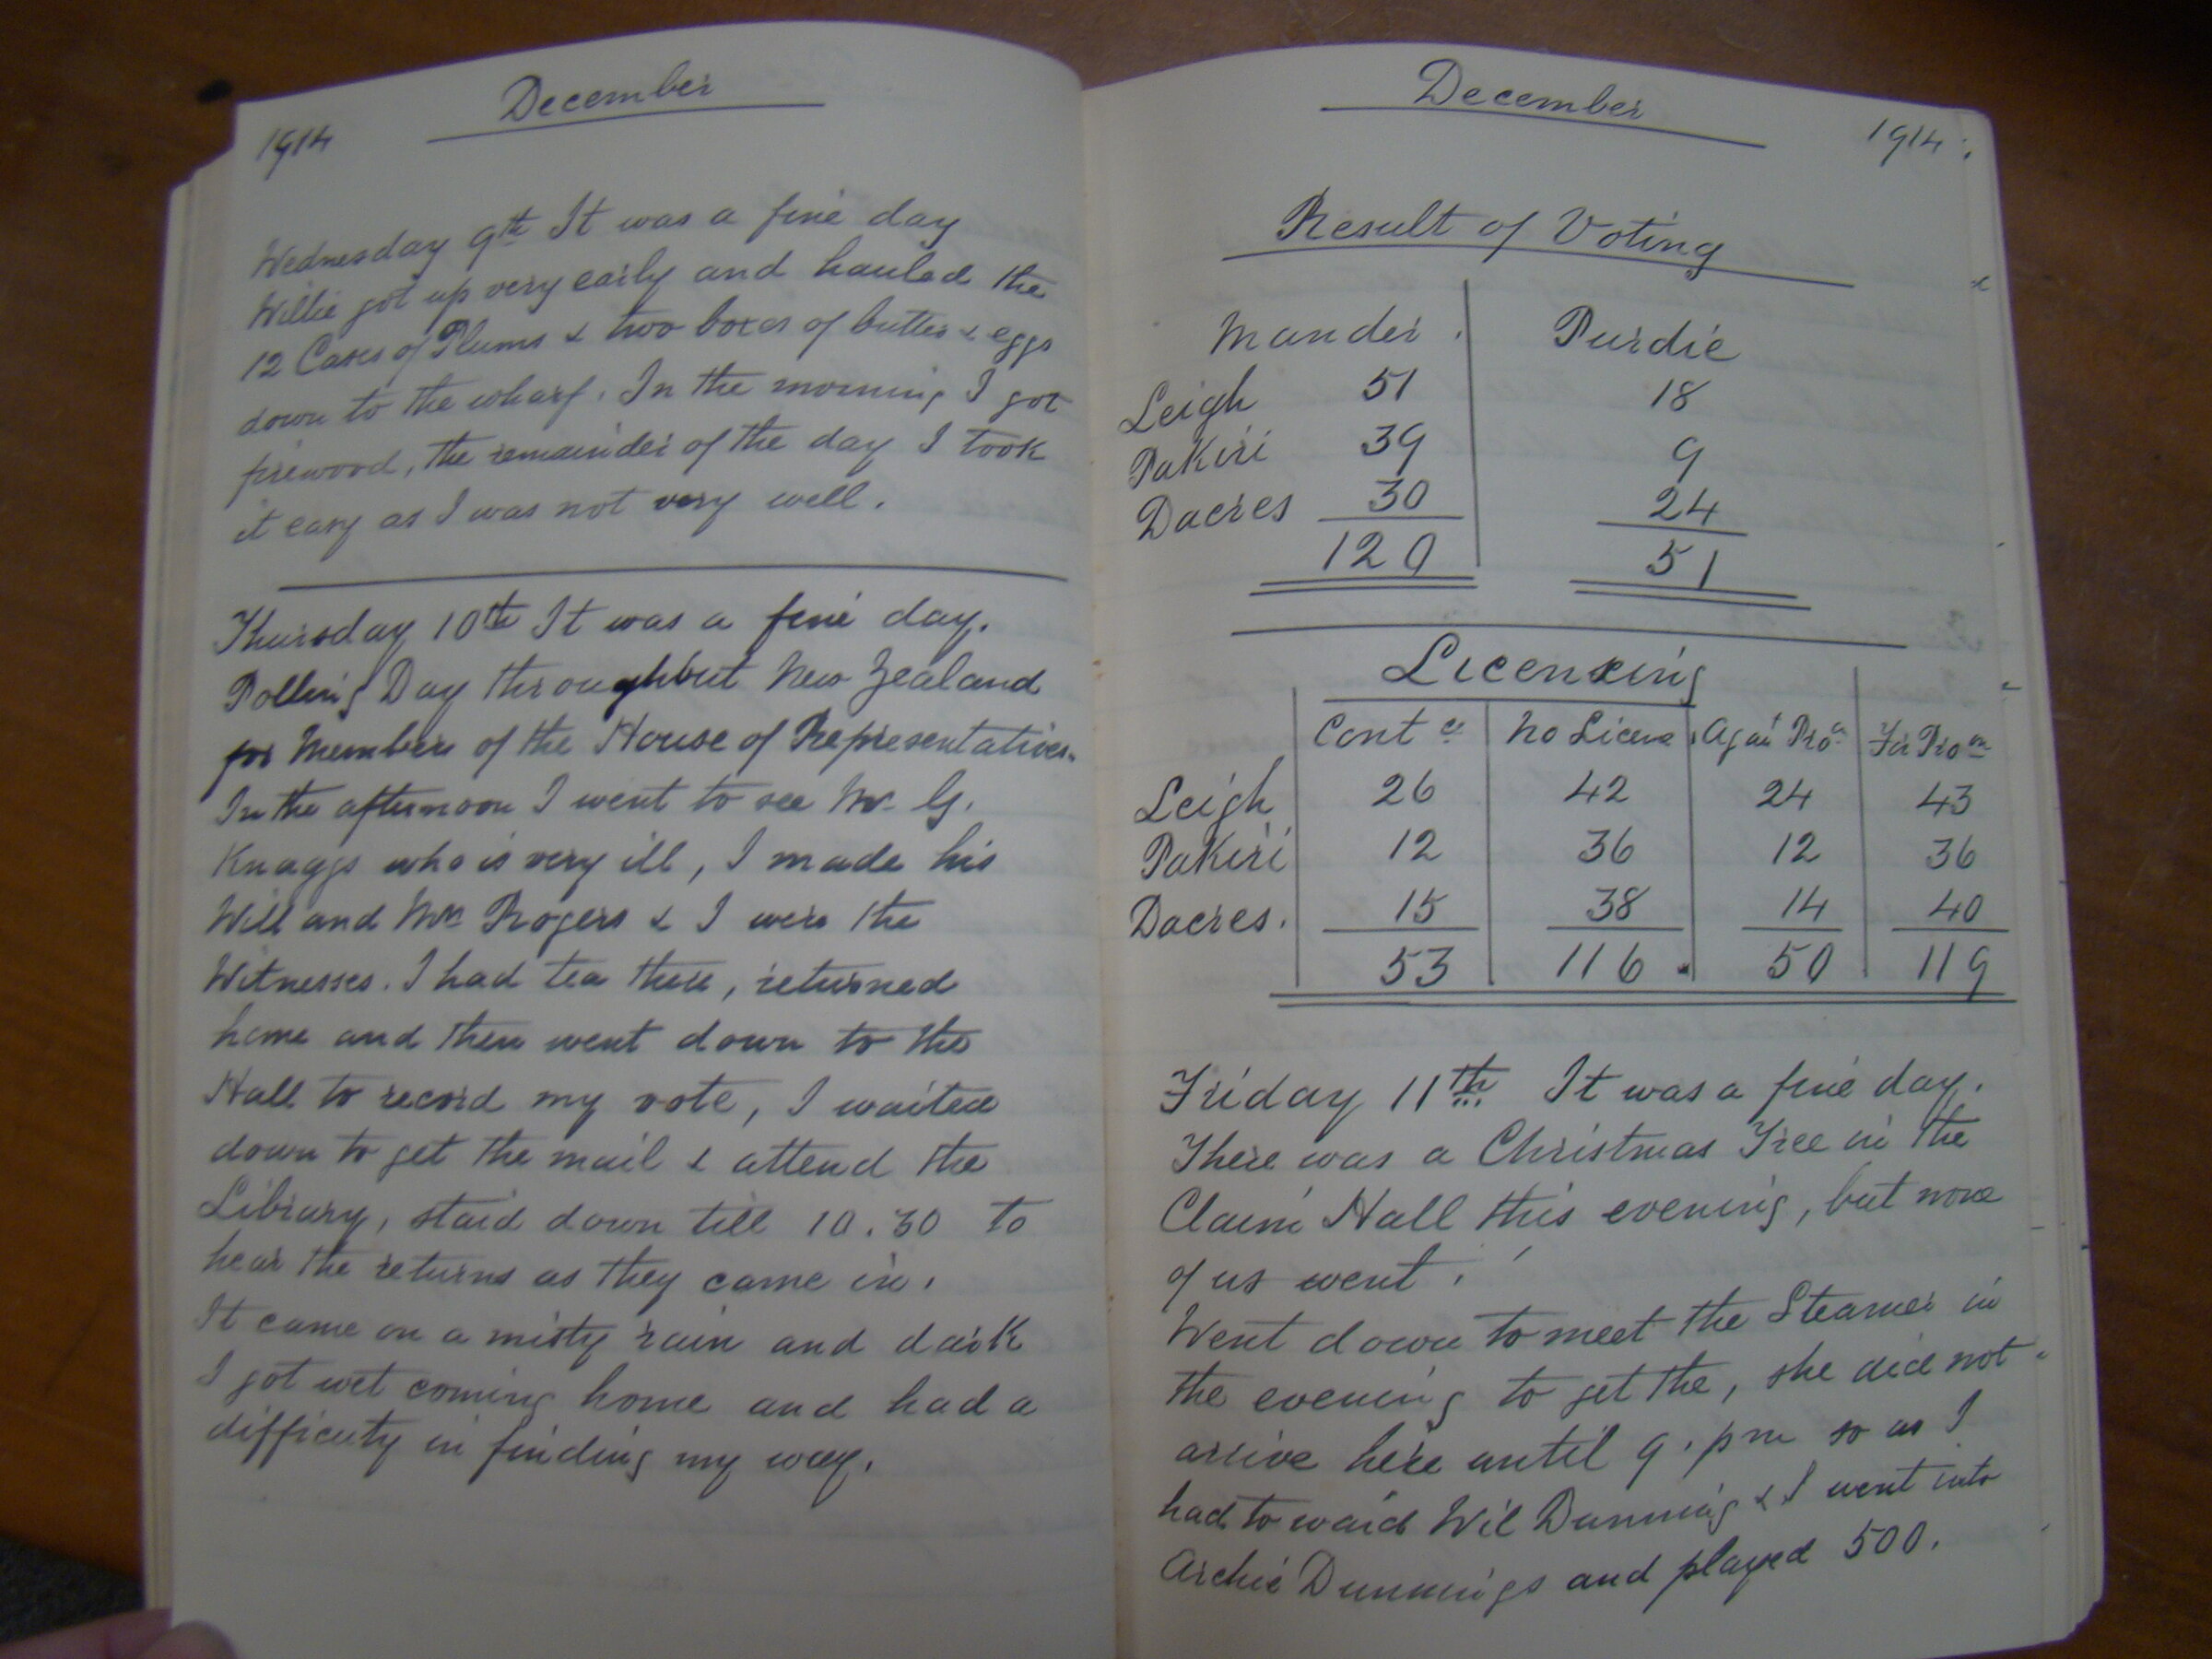 December
1914
Wednesday 9th It was a fine day
Willie got up very early and hauled the
12 Cases of Plums & two boxes of butter & eggs
down to the wharf. In the morning I got
firewood, the remainder of the day I took
it easy as I was not very well.
Thursday 10th It was a fine day.
Polling Day throughout New Zealand
for Members of the House of Representatives.
In the afternoon I went to see Mr G.
Knaggs who is very ill, I made his
Will and Mrs Rogers & I were the
Witnesses. I had tea there, returned
home and then went down to the
Hall to record my vote, I waited
down to get the mail & attend the
Library, staid down till 10.30 to
hear the returns as they came in.
It came on a misty rain and dark
I got wet coming home and had a
difficuty in finding my way.
December
1914
Result of Voting
Mander Purdie
Leigh 51 18
Pakiri 39 9
Dacres 30 24
120 51
Licensing
Cont ce No Licens Agai Pron For Pron
Leigh 26 42 24 43
Pakiri 12 36 12 36
Dacres. 15 38 14 40
53 116 50 119
Friday 11th It was a fine day.
There was a Christmas Tree in the
Hall this evening, but none
of us went.
Went down to meet the Steamer in
the evening to get the, she did not
arrive here until 9.pm so as I
had to waid Wil Dunning & I went into
Archie Dunnings and played 500.